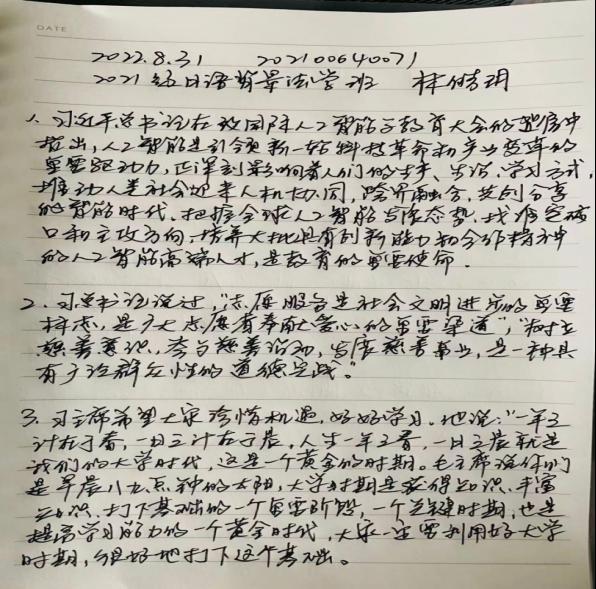 DATE
2022.8.31 202100640071
2021级日语背景法学班 林皓玥
1. 习近平总书记在致国际人工智能与教育大会的贺信中
指出,人工智能是引领新一轮科技革命和产业变革的
重要驱动力,正深刻影响着人们的生产、生活、学习方式,
推动人类社会迎来人机协同,跨界融合,共创分享
的智能时代。把握全球人工智能发展态势,找准突破
口和主攻方向,培养大批具有创新能力和合作精神
的人工智能高端人才,是教育的重要使命。
2. 习总书记说过,“志愿服务是社会文明进步的重要
标志,是广大志愿者奉献爱心的重要渠道”,“树立
慈善意识、参与慈善活动、发展慈善事业,是一种具
有广泛群众性的道德实践。”
3. 习主席希望大家珍惜机遇,好好学习。他说:“一年之
计在于春,一日之计在于晨,人生一年之春,一日之晨就是
我们的大学时代,这是一个黄金的时期。毛主席说你们
是早晨八九点钟的太阳,大学时期是获得知识、丰富
知识、打下基础的一个重要阶段,一个关键时期,也是
提高学习能力的一个黄金时代,大家一定要利用好大学
时期,很好地打下这个基础。